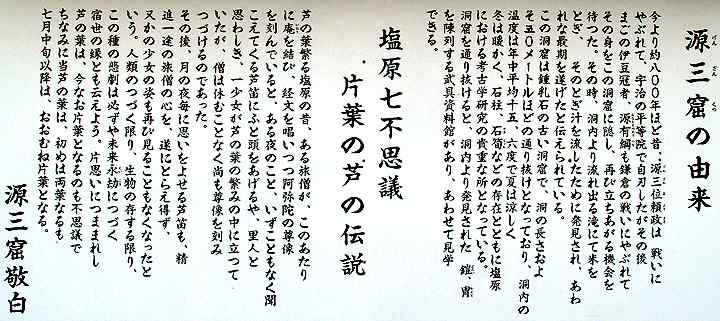 源三窟の由来
今より約八〇〇年ほど昔、源三位頼政は 戦いに
やぶれて、宇治の平等院で自刃したがその後、
まごの伊豆冠者、源有綱も鎌倉の戦いにやぶれて
その身をこの洞窟に隠し、再び立ちあがる機会を
待つた。その時、洞内より流れ出る滝にて米を
とぎ、 そのとぎ汁を流したために発見され、あわ
れな最期を遂げたと伝えられている。
この洞窟は鍾乳石の古い洞窟で、洞の長さおよ
そ五〇メートルほどの通り抜けとなっており、洞内の
温度は年中平均十五、六度で夏は涼しく
冬は暖かく、石柱、石筍などの存在とともに塩原
における考古学研究の貴重な所となっている。
洞窟を通り抜けると、洞内より発見された 鎧、冑
を陳列する武具資料館があり、あわせて見学
できる。
塩原七不思議
片葉の芦の伝説
芦の葉繁る塩原の昔、ある旅僧が、このあたり
に庵を結び、経文を唱いつつ阿弥陀の尊像
を刻んでいると、ある夜のこと、いずこともなく聞
こえてくる芦笛にふと頭をあげるや、里人と
思わしき、一少女が芦の葉の繁みの中に立つて
いたが、僧は休むことなく尚も尊像を刻み
つづけるのであった。
その後、月の夜毎に思いをよせる芦笛も、精
進一途の旅僧の心を、遂にとらえ得ず、
又かの少女の姿も再び見ることもなくなつたと
いう。人類のつづく限り、生物の存する限り、
この種の悲劇は必ずや未来永劫につづく
宿世の縁とも云えよう。片思いにつままれし
芦の葉は、今なお片葉となるのも不思議で
ちなみに当芦の葉は、初めは両葉なるも
七月中旬以降は、おおむね片葉となる。
源三窟敬白